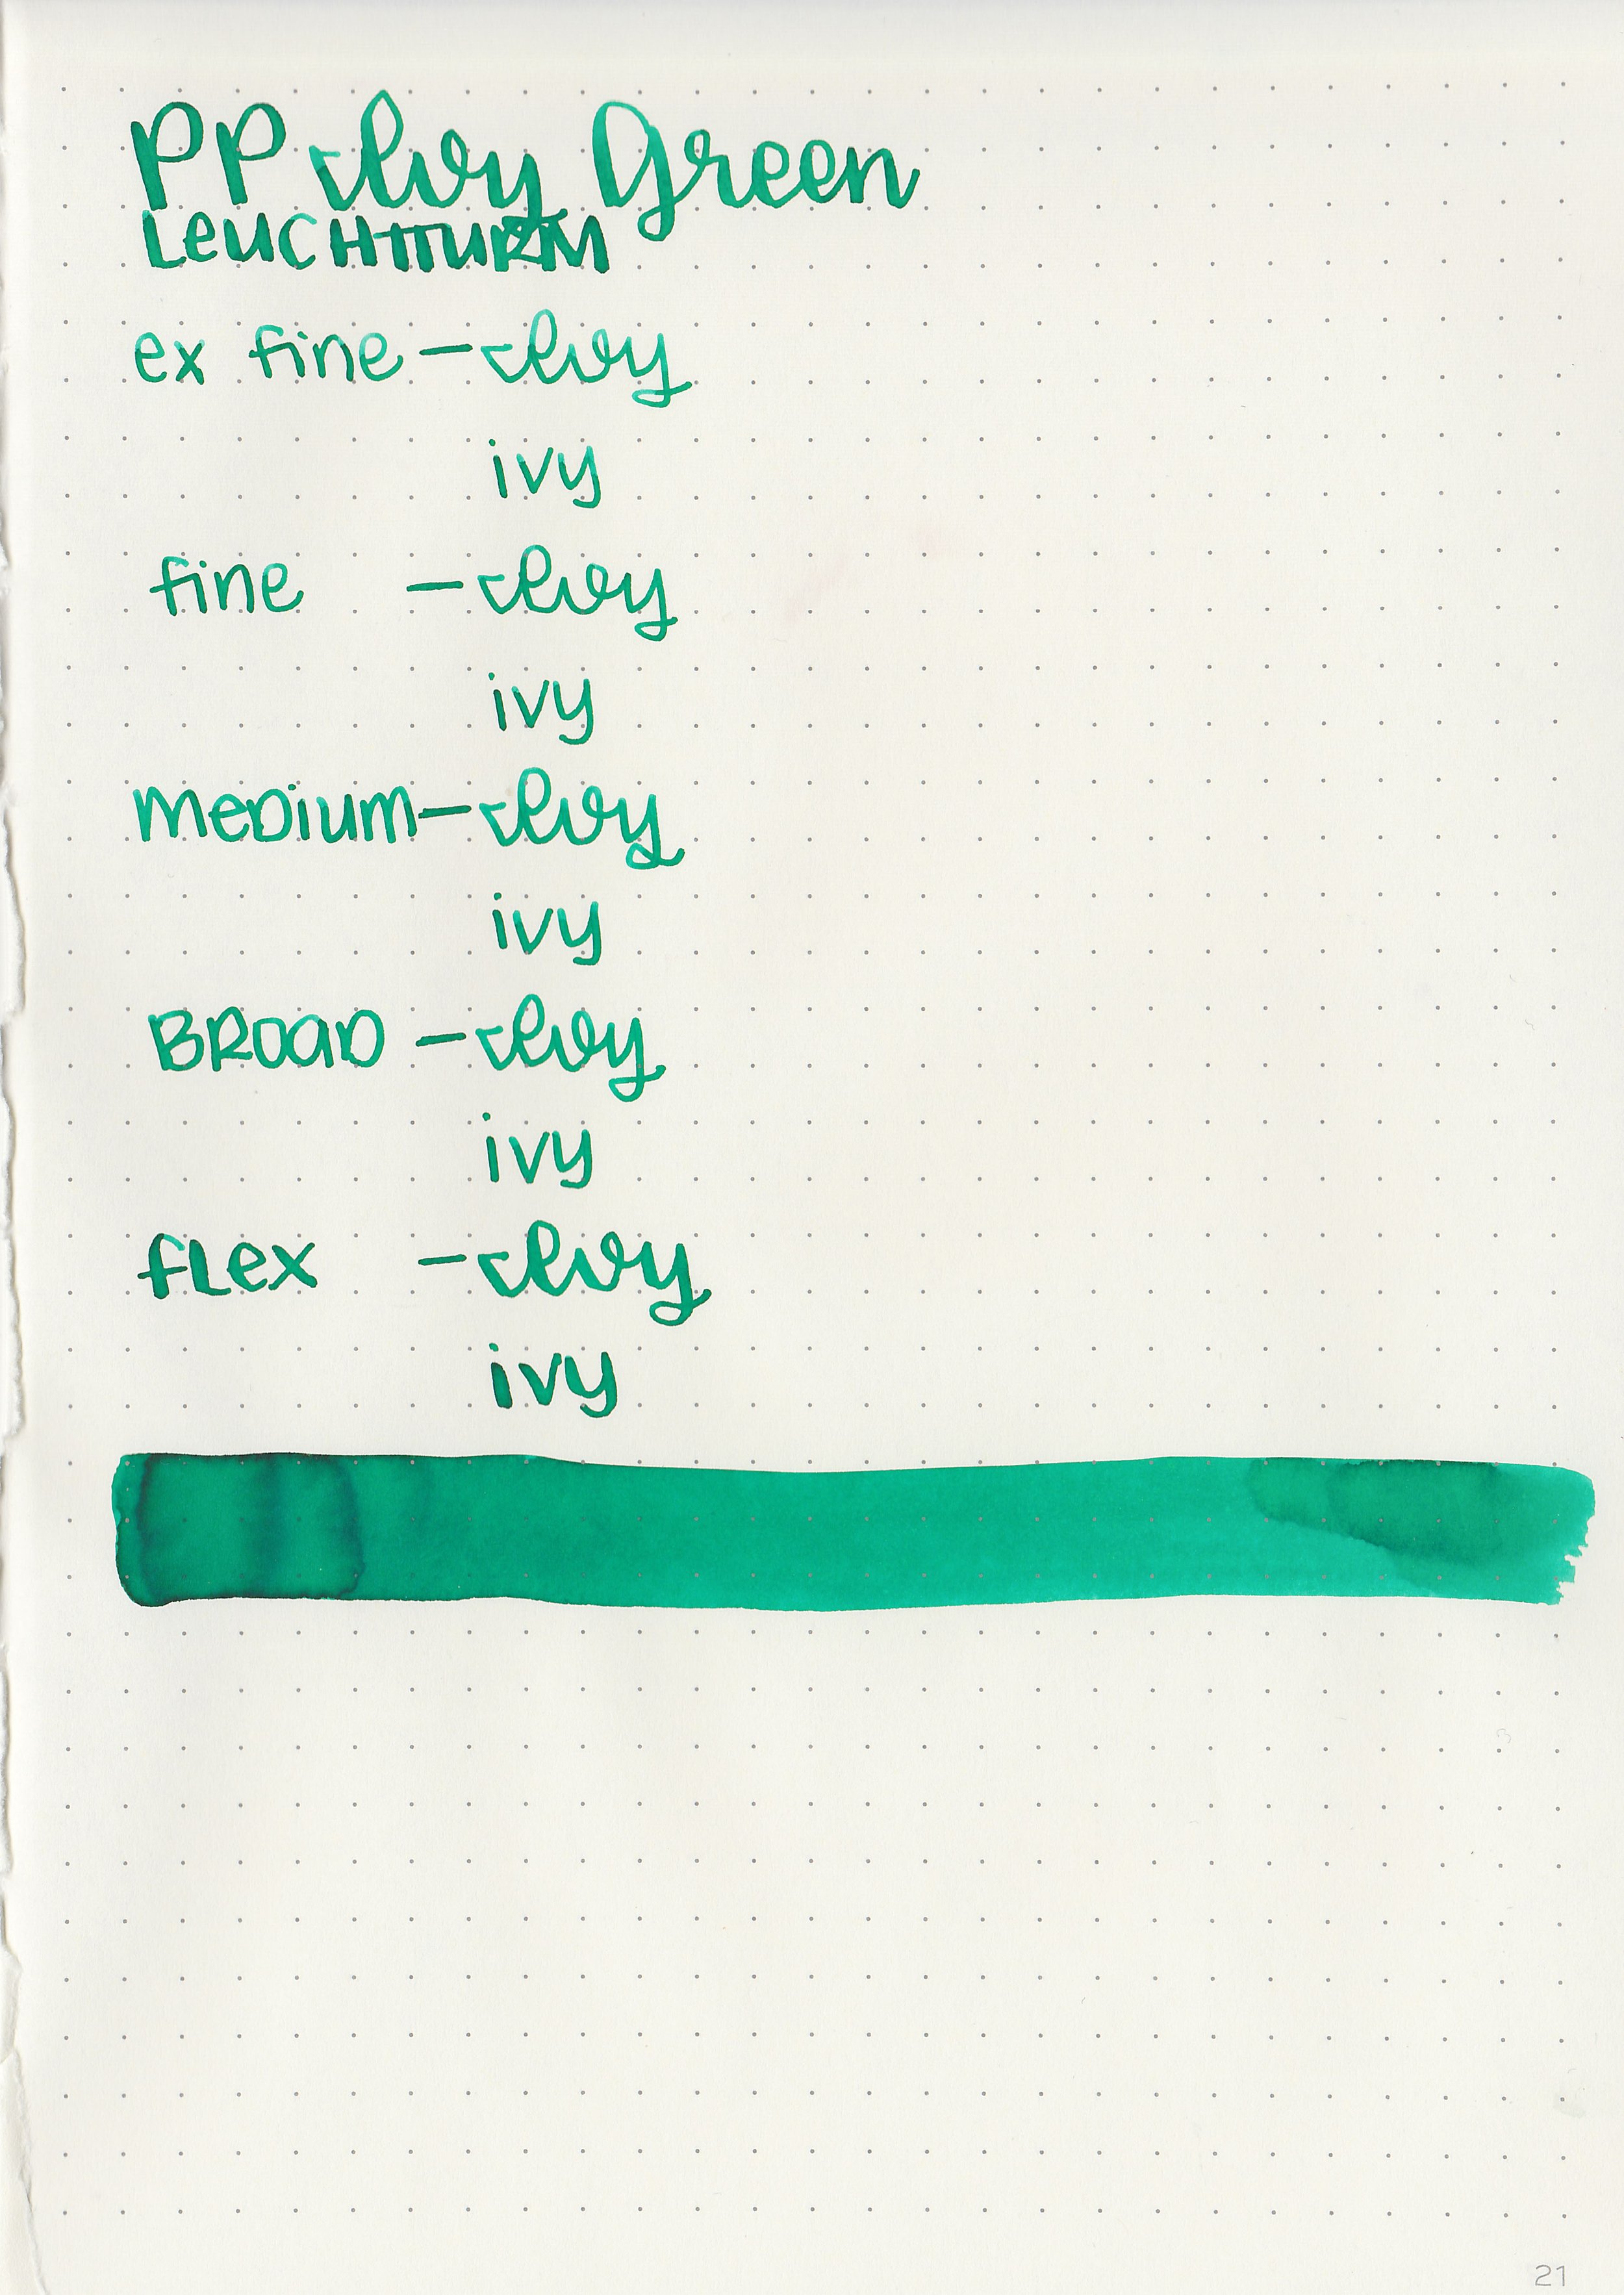 PP Ivy Green
LEUCHTTURM
ex fine — Ivy
ivy
fine — Ivy
ivy
MEDIUM — Ivy
ivy
BROAD — Ivy
ivy
flex — Ivy
ivy
21